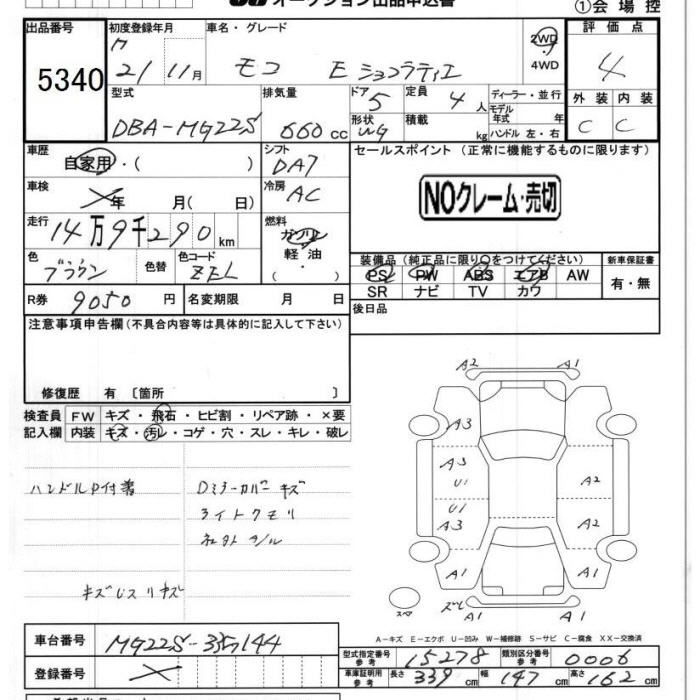 オークション出品申込書
①会場控
出品番号 5340
初度登録年月 H 21/11月
車名・グレード モコ E ショコラティエ
2WD・4WD
評価点 4
外装 C 内装 C
型式 DBA-MG22S
排気量 660cc
ドア 5
形状 WG
定員 4人
積載 kg
ディーラー・並行
モデル年式 年
ハンドル 左・右
車歴 自家用・( )
シフト DA7
車検 年 月( 日)
冷房 AC
走行 14万9千290km
燃料 ガソリン 軽油・( )
色 ブラウン 色替
色コード ZEL
R券 9050円
名変期限 月 日
セールスポイント (正常に機能するものに限ります)
NOクレーム・売切
装備品 (純正品に限り○をつけてください)
新車保証書
PS PW ABS エアB AW
SR ナビ TV カワ
有・無
後日品
注意事項申告欄(不具合内容等は具体的に記入して下さい)
修復歴 有 〔箇所 〕
検査員記入欄
FW キズ・飛石・ヒビ割・リペア跡・×要
内装 キズ・汚レ・コゲ・穴・スレ・キレ・破レ
ハンドル
Dミラーカバー キズ
ライトクモリ
A2 A1
A3
A3 U1 A2
U1 A3 A2
A1 A1
スペア A1
A-キズ E-エクボ U-凹み W-補修跡 S-サビ C-腐食 XX-交換済
車台番号 MG22S-335144
登録番号
型式指定番号 参考 15278
類別区分番号 参考 0006
車庫証明用 参考 長さ 339cm 幅 147cm 高さ 162cm